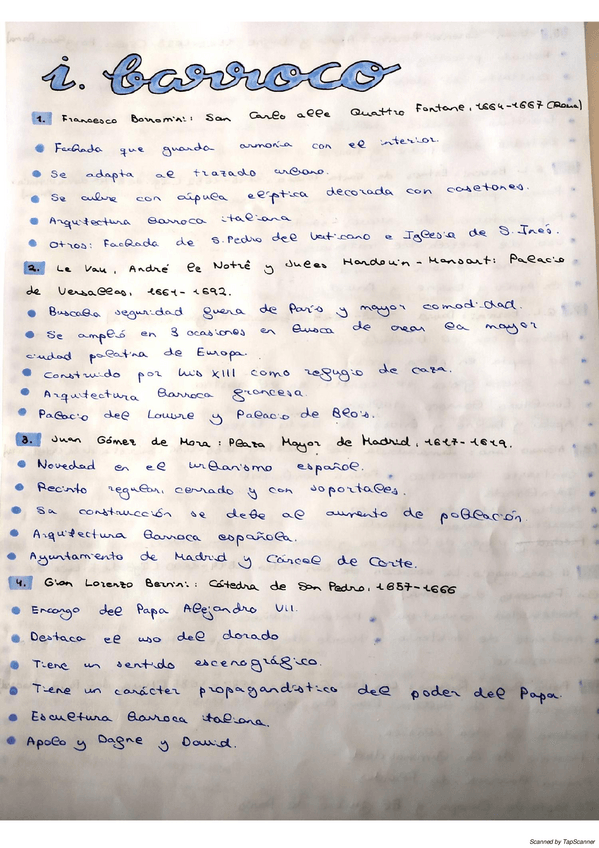 i. barroco
1. Francesco Borromini: San Carlo alle Quattro Fontane, 1664-1667 (Roma)
• Fachada que guarda armonía con el interior.
• Se adapta al trazado urbano.
• Se cubre con cúpula elíptica decorada con casetones.
• Arquitectura Barroca italiana
• Otros: Fachada de S. Pedro del Vaticano e Iglesia de S. Inés.
2. Le Vau, André le Notrê y Jules Hardouin-Mansart: Palacio
de Versalles, 1661-1692.
• Buscaba seguridad fuera de París y mayor comodidad.
• Se amplió en 3 ocasiones en busca de crear la mayor
ciudad palatina de Europa.
• Construido por Luis XIII como refugio de caza.
• Arquitectura Barroca francesa.
• Palacio del Louvre y Palacio de Blois.
3. Juan Gómez de Mora: Plaza Mayor de Madrid, 1617-1619.
• Novedad en el urbanismo español.
• Recinto regular, cerrado y con soportales.
• Su construcción se debe al aumento de población
• Arquitectura Barroca española.
• Ayuntamiento de Madrid y Cárcel de Corte.
4. Gian Lorenzo Bernini: Cátedra de San Pedro, 1657-1666
• Encargo del Papa Alejandro VII.
• Destaca el uso del dorado
• Tiene un sentido escenográfico.
• Tiene un carácter propagandístico del poder del Papa.
• Escultura Barroca italiana.
• Apolo y Dafne y David.
Scanned by TapScanner